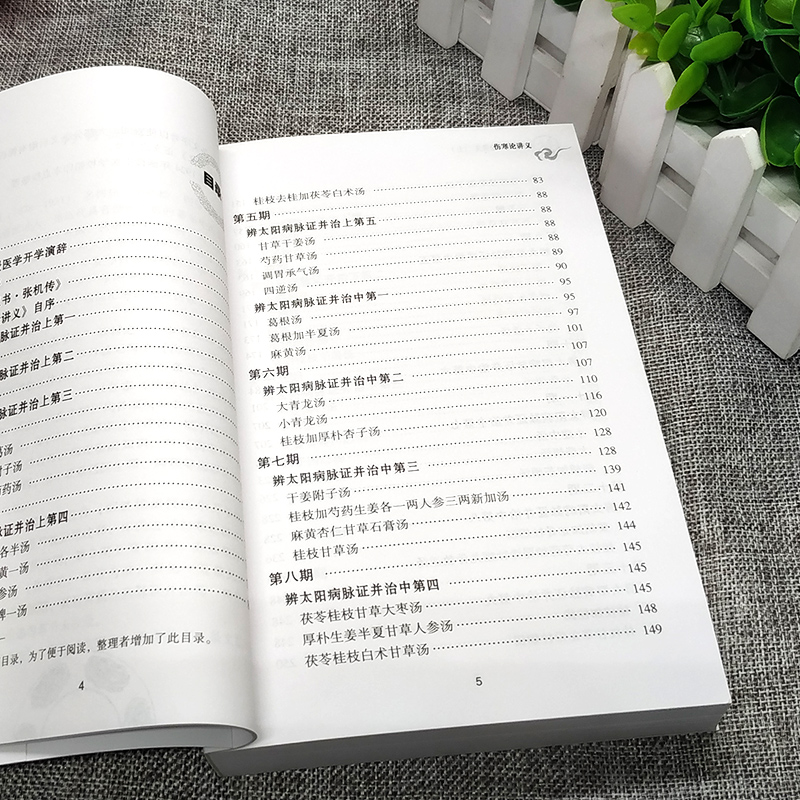 目
医学开学演辞
书·张机传》
讲义》自序
脉证并治上第一
脉证并治上第二
脉证并治上第三
葛汤
附子汤
药汤
脉证并治上第四
各半汤
黄一汤
参汤
婢一汤
目录，为了便于阅读，整理者增加了此目录。
4
伤寒论讲义
桂枝去桂加茯苓白术汤 83
第五期 88
辨太阳病脉证并治上第五 88
甘草干姜汤 88
芍药甘草汤 88
调胃承气汤 89
四逆汤 90
辨太阳病脉证并治中第一 95
葛根汤 95
葛根加半夏汤 97
麻黄汤 101
第六期 107
辨太阳病脉证并治中第二 107
大青龙汤 110
小青龙汤 116
桂枝加厚朴杏子汤 120
第七期 128
辨太阳病脉证并治中第三 128
干姜附子汤 139
桂枝加芍药生姜各一两人参三两新加汤 141
麻黄杏仁甘草石膏汤 142
桂枝甘草汤 144
第八期 145
辨太阳病脉证并治中第四 145
茯苓桂枝甘草大枣汤 145
厚朴生姜半夏甘草人参汤 148
茯苓桂枝白术甘草汤 149
5